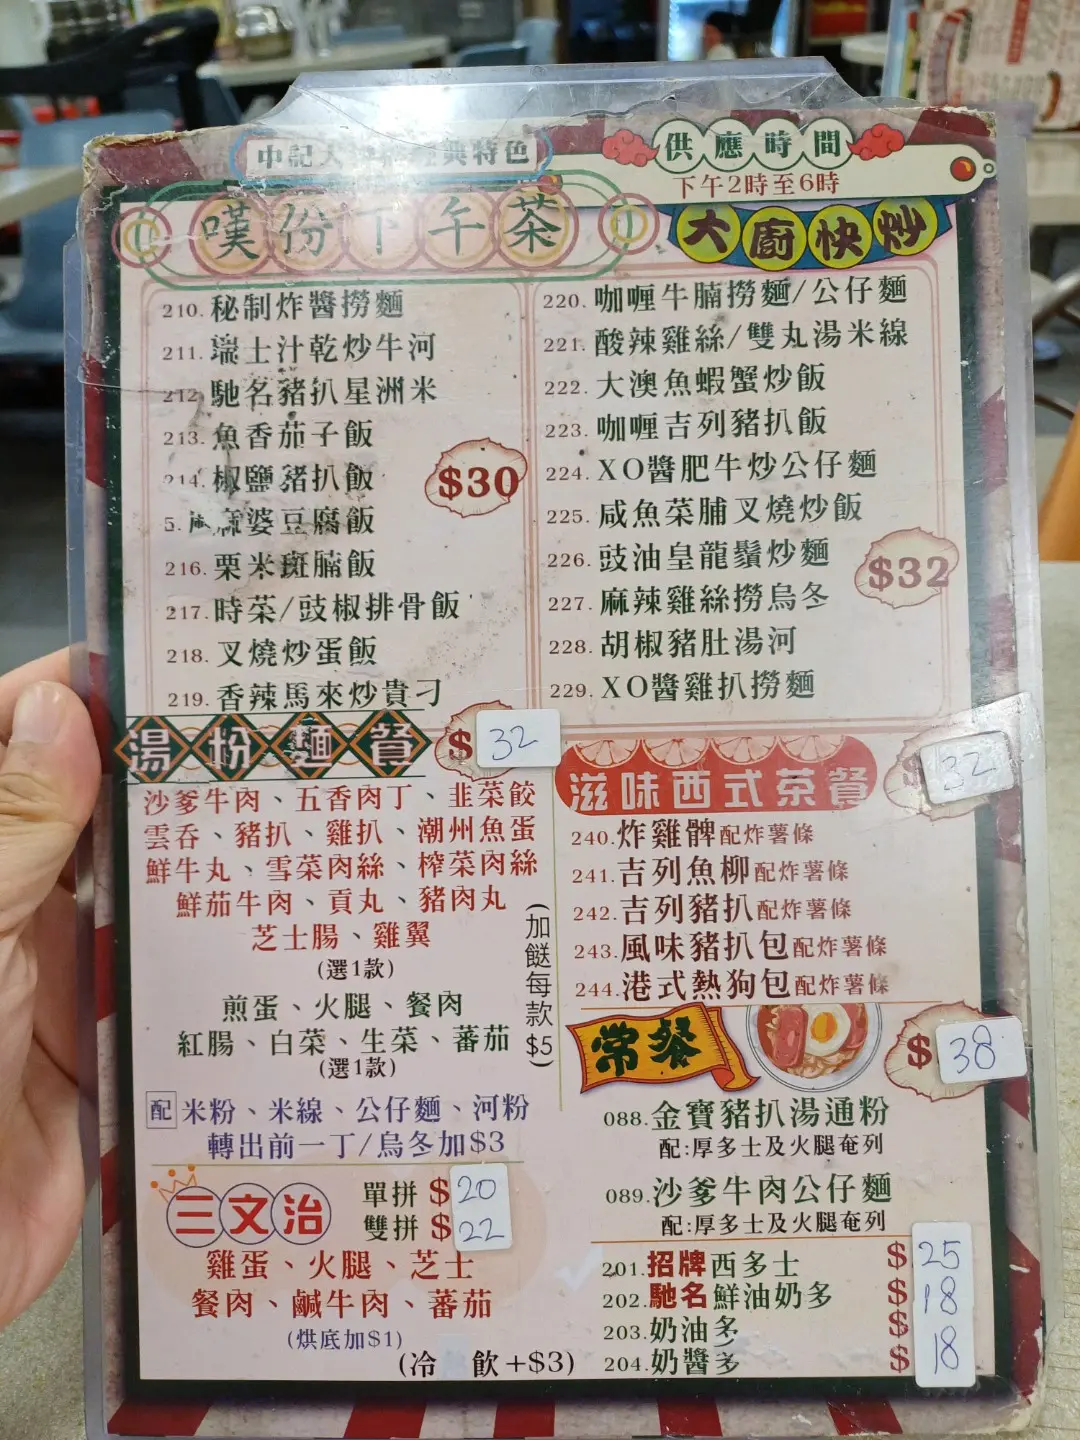 中記大 經典特色
供應時間
下午2時至6時
嘆份下午茶
大廚快炒
210.秘制炸醬撈麵
211.瑞士汁乾炒牛河
212.馳名豬扒星洲米
213.魚香茄子飯
214.椒鹽豬扒飯
5.麻婆豆腐飯
216.粟米斑腩飯
217.時菜/豉椒排骨飯
218.叉燒炒蛋飯
219.香辣馬來炒貴刁
$30
220.咖喱牛腩撈麵/公仔麵
221.酸辣雞絲/雙丸湯米線
222.大澳魚蝦蟹炒飯
223.咖喱吉列豬扒飯
224.XO醬肥牛炒公仔麵
225.咸魚菜脯叉燒炒飯
226.豉油皇龍鬚炒麵
227.麻辣雞絲撈烏冬
228.胡椒豬肚湯河
229.XO醬雞扒撈麵
$32
湯粉麵餐 $32
沙爹牛肉、五香肉丁、韭菜餃
雲吞、豬扒、雞扒、潮州魚蛋
鮮牛丸、雪菜肉絲、榨菜肉絲
鮮茄牛肉、貢丸、豬肉丸
芝士腸、雞翼
(選1款)
煎蛋、火腿、餐肉
紅腸、白菜、生菜、蕃茄
(選1款)
(加餸每款$5)
配 米粉、米線、公仔麵、河粉
轉出前一丁/烏冬加$3
三文治
單拼 $20
雙拼 $22
雞蛋、火腿、芝士
餐肉、鹹牛肉、蕃茄
(烘底加$1)
(冷 飲+$3)
滋味西式茶餐 $32
240.炸雞髀配炸薯條
241.吉列魚柳配炸薯條
242.吉列豬扒配炸薯條
243.風味豬扒包配炸薯條
244.港式熱狗包配炸薯條
常餐 $38
088.金寶豬扒湯通粉
配:厚多士及火腿奄列
089.沙爹牛肉公仔麵
配:厚多士及火腿奄列
201.招牌西多士 $25
202.馳名鮮油奶多 $18
203.奶油多 $
204.奶醬多 $18